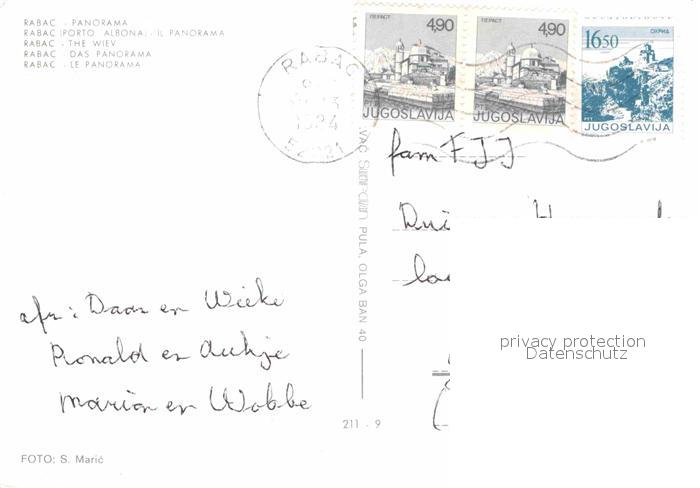 RABAC - PANORAMA
RABAC (PORTO ALBONA) - IL PANORAMA
RABAC - THE WIEV
RABAC - DAS PANORAMA
RABAC - LE PANORAMA
ПЕРАСТ 4,90
PTT JUGOSLAVIJA
ПЕРАСТ 4,90
PTT JUGOSLAVIJA
16,50 ОХРИД
PTT JUGOSLAVIJA
RABAC
1984
PULA, OLGA BAN 40
fam
afz: Daan en Wieke
Ronald en Aukje
Marian en Wobbe
privacy protection
Datenschutz
211 - 9
FOTO: S. Marić